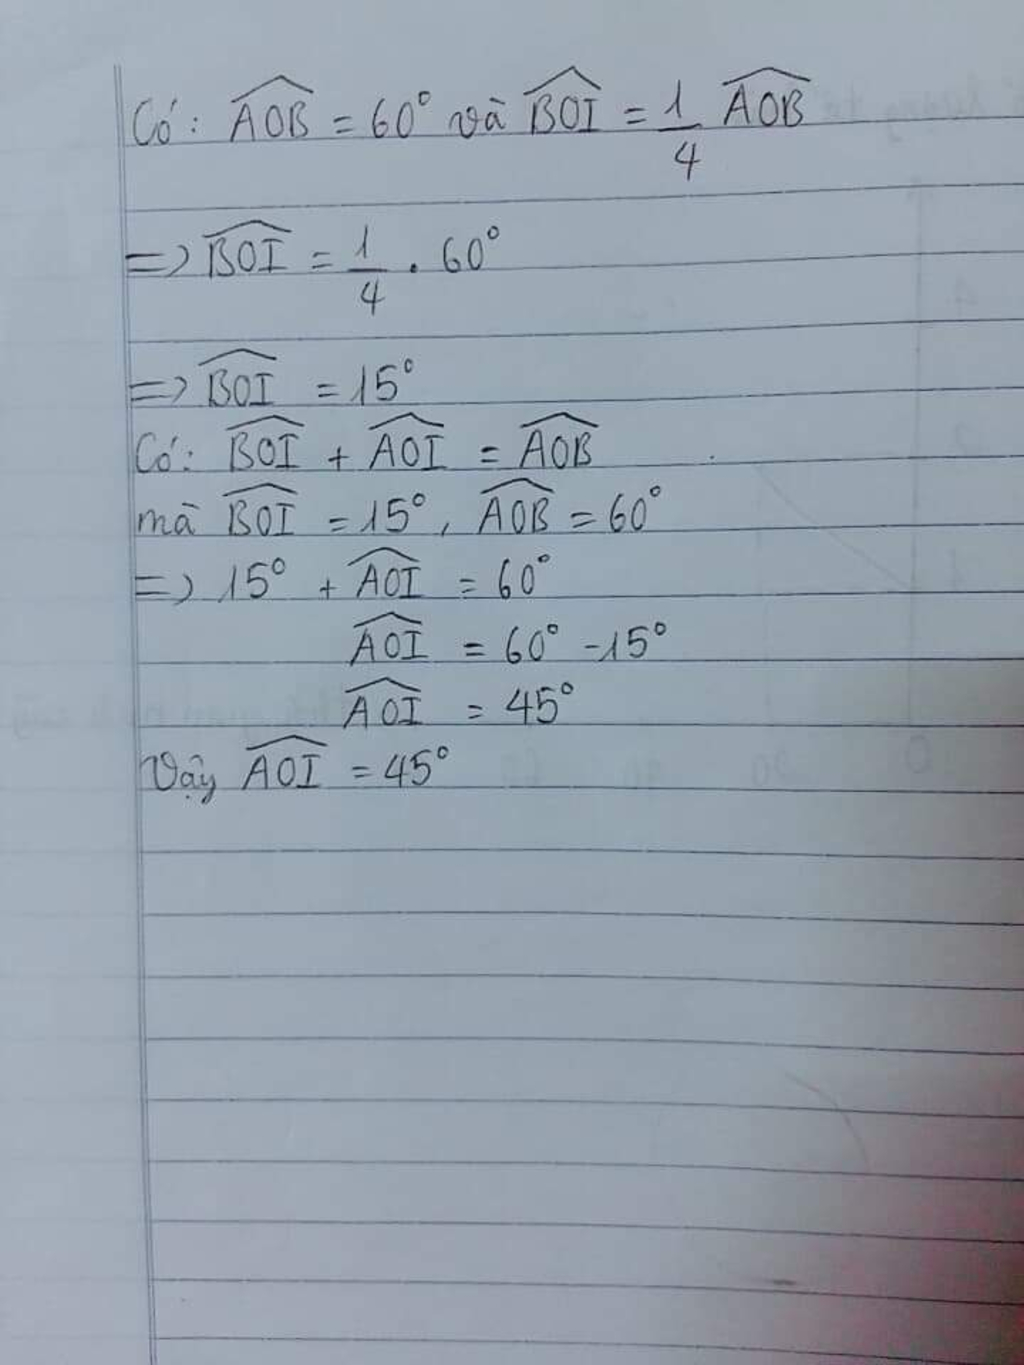 Có: AOB = 60° và BOI = 1/4 AOB
=> BOI = 1/4 . 60°
=> BOI = 15°
Có: BOI + AOI = AOB
mà BOI = 15°, AOB = 60°
=> 15° + AOI = 60°
AOI = 60° - 15°
AOI = 45°
Vậy AOI = 45°